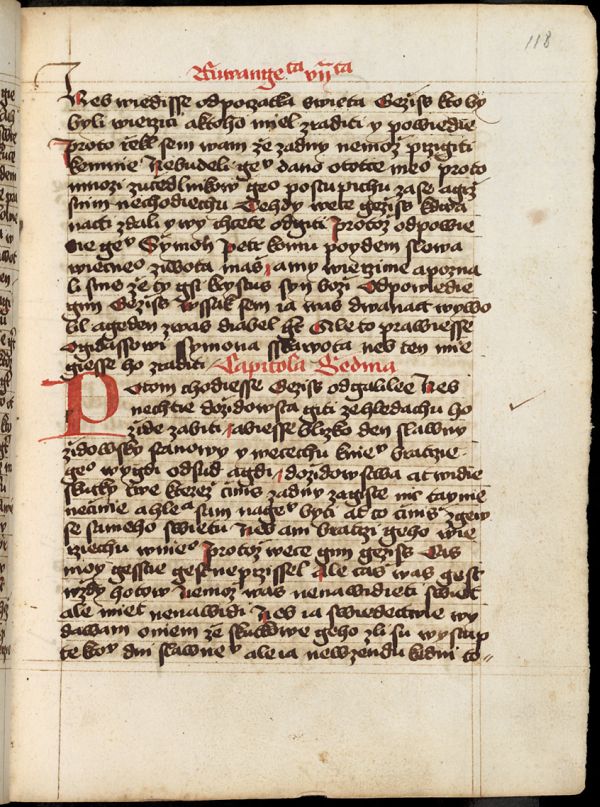 118
Ewange ta vii ta
Neb wiedisse odpoczatka swieta Geziss kto by
byli wierzici a koho miel zraditi y powiedie
proto rzekl sem wam ze zadny nemoz przigiti
kemnie Nebudeli geᵘ dano ototce meᵒ proto
mnozi zucedlnikow geᵒ postupichu zase agiz
snim nechodiechu Tehdy wece geziss kdwa
nacti zdali y wy chcete odgiti Protoz odpowie
die geᵘ Symon Petr komu poydem slowa
wiecneᵒ ziwota mas a my wierzime a pozna
li sme ze ty gsi krystus syn bozi Odpowiedie
gim Geziss wssak sem ia was dwanact wywo
lil a geden zwas diabel gt Ale to prawiesse
ogidassowi symona skariota neb ten mie
giesse ho zraditi Capitola Sedma
Potom chodiesse Geziss odgalilee Neb
nechtie dozidowstwa giti ze hledachu ho
zide zabiti abiesse blizko den slawny
zidowsky stanowy y wecechu knieᵘ bratrzie
geᵒ wygdi odsud a gdi dozidowstwa at widie
skutky twe kterez cinis zadny zagiste nic taynie
necinie a hleda sam nageᵘ byti at to cinis zgew
se sameho swietu Neb ani bratrzi geho wie
rziechu wnieᵒ Protoz wece gim geziss Cas
moy gesstie gest neprzissel Ale cas was gest
wzdy hotow Nemoz was nenawidieti swiet
ale miet nenawidi Neb ia swiedectwie wy
dawam oniem ze skutkowe geho zli su wystup
te koᵘ dni slawneᵘ ale ia newzendu kdni to